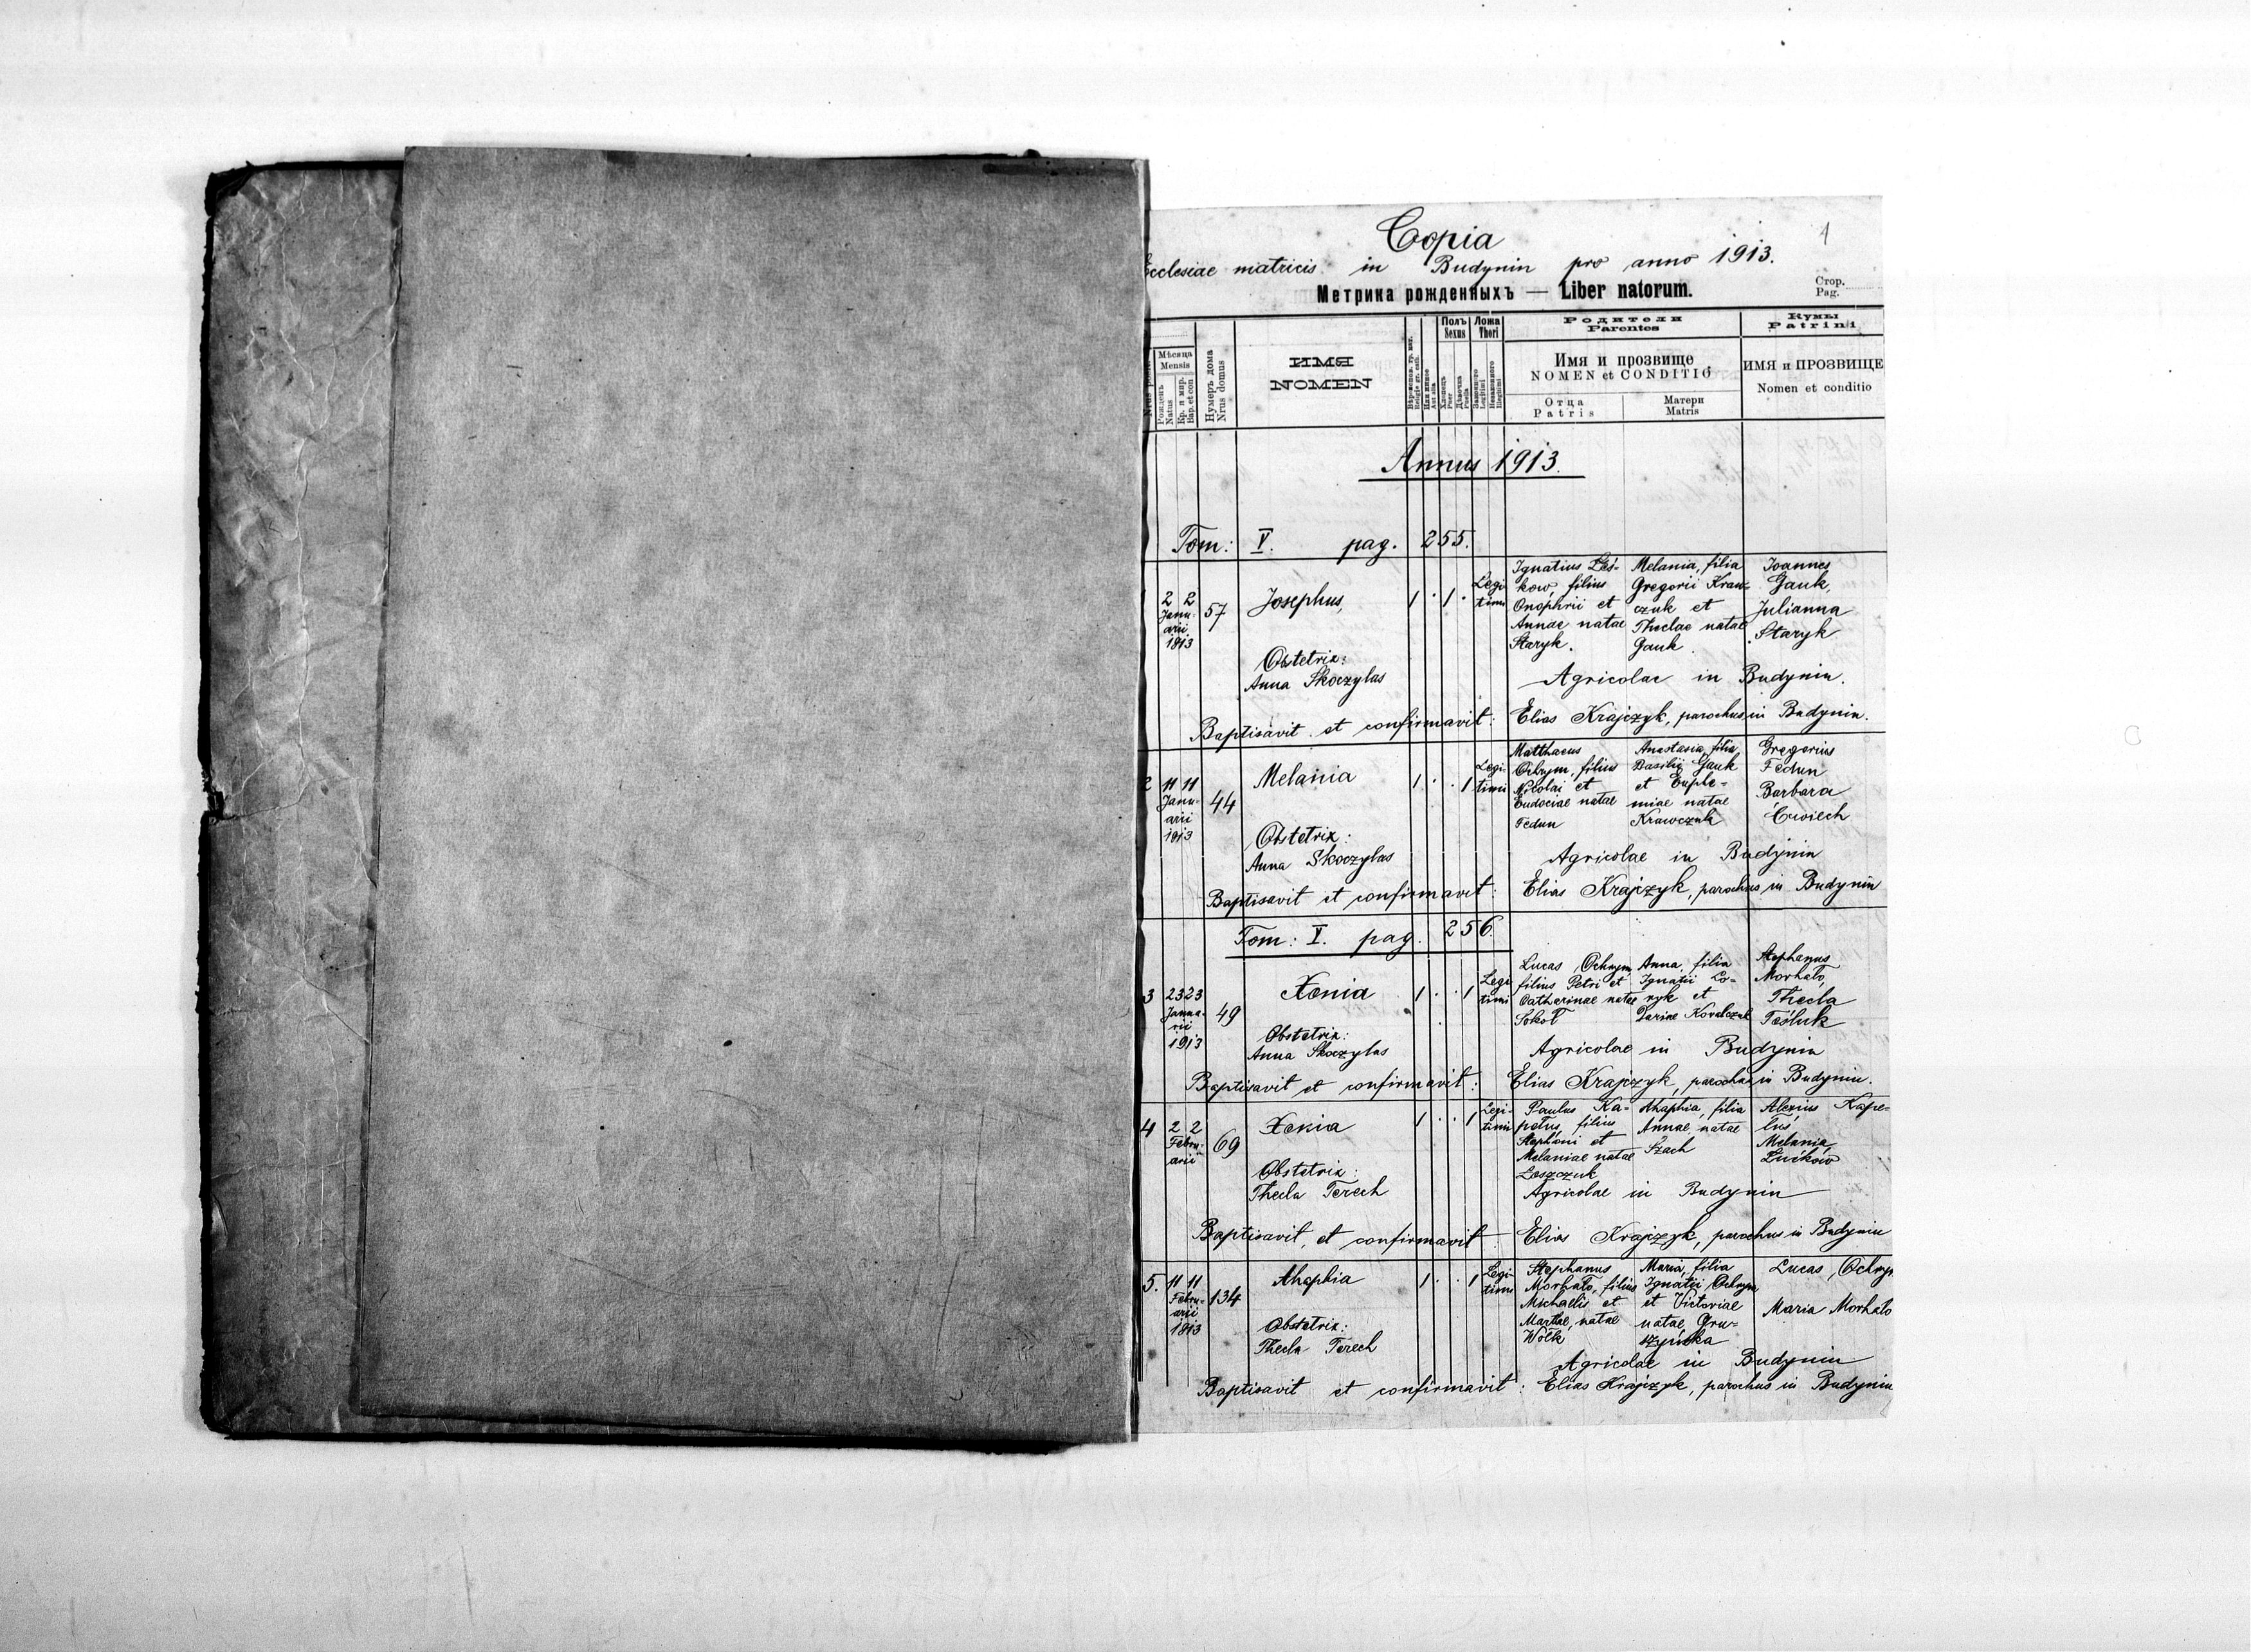 Copia
1
Ecclesiae matricis in Budynin pro anno 1913.
Метрика рожденныхъ — Liber natorum.
Стор.
Pag.
Мѣсяца
Mensis
Рожденъ
Natus
Кр. и мир.
Bap. et con
Нумеръ дома
Nrus domus
ИМЯ
NOMEN
Полъ
Sexus
Хлопецъ
Puer
Дѣвочка
Puella
Ложа
Thori
Законного
Legitimi
Незаконного
Illegitimi
Родители
Parentes
Имя и прозвище
NOMEN et CONDITIO
Отца
Patris
Матери
Matris
Кумы
Patrini
ИМЯ и ПРОЗВИЩЕ
Nomen et conditio
Annus 1913.
Tom: V. pag. 255.
2 2
Janu-
arii
1913
57
Josephus,
Obstetrix:
Anna Skoczylas
1 . 1 .
Legi
timi
Ignatius Leś-
kow, filius
Onophrii et
Annae natae
Staryk.
Melania, filia
Gregorii Kraw-
czuk et
Theclae natae
Gauk.
Joannes
Gauk,
Julianna
Staryk
Agricolae in Budynin.
Baptisavit et confirmavit: Elias Krajczyk, parochus in Budynin.
2
11 11
Janu-
arii
1913
44
Melania
Obstetrix:
Anna Skoczylas
1 . . 1
Legi-
timi
Matthaeus
Ochrym, filius
Nicolai et
Eudociae natae
Fedun
Anastasia, filia
Basilii Gauk
et Euphe-
miae natae
Krawczuk
Gregorius
Fedun
Barbara
Ćwiech
Agricolae in Budynin
Baptisavit et confirmavit: Elias Krajczyk, parochus in Budynin
Tom: V. pag. 256.
3
23 23
Janua-
rii
1913
49
Xenia
Obstetrix:
Anna Skoczylas
1 . . 1
Legi
timi
Lucas Ochrym,
filius Petri et
Catharinae natae
Sokoł
Anna, filia
Ignatii Lo-
ryk et
Dariae Kowalczuk
Stephanus
Morhało,
Thecla
Teśluk
Agricolae in Budynin
Baptisavit et confirmavit: Elias Krajczyk, parochus in Budynin.
4
2 2
Febru-
arii
69
Xenia
Obstetrix:
Thecla Terech
1 . . 1
Legi-
timi
Paulus Ka-
pelus, filius
Stephani et
Melaniae natae
Leszczuk
Ahaphia, filia
Annae, natae
Szach
Alexius Kape-
lus
Melania
Agricolae in Budynin
Baptisavit et confirmavit: Elias Krajczyk, parochus in Budynin
5.
11 11
Febru-
arii
1913
134
Ahaphia
Obstetrix:
Thecla Terech
1 . . 1
Legi-
timi
Stephanus
Morhało, filius
Michaelis et
Marthae, natae
Wołk
Maria, filia
Ignatii Ochrym
et Victoriae
natae Gru-
szyńska
Lucas Ochrym
Maria Morhało
Agricolae in Budynin
Baptisavit et confirmavit: Elias Krajczyk, parochus in Budynin